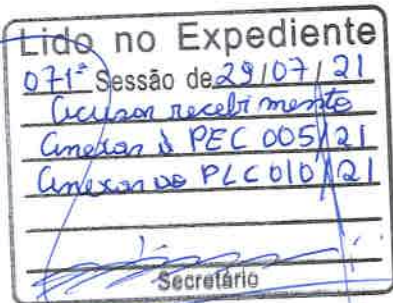 Lido no Expediente
071ª Sessão de 29/07/21
Acusar recebimento
Anexar à PEC 005/21
Anexar ao PLC 010/21
Secretário